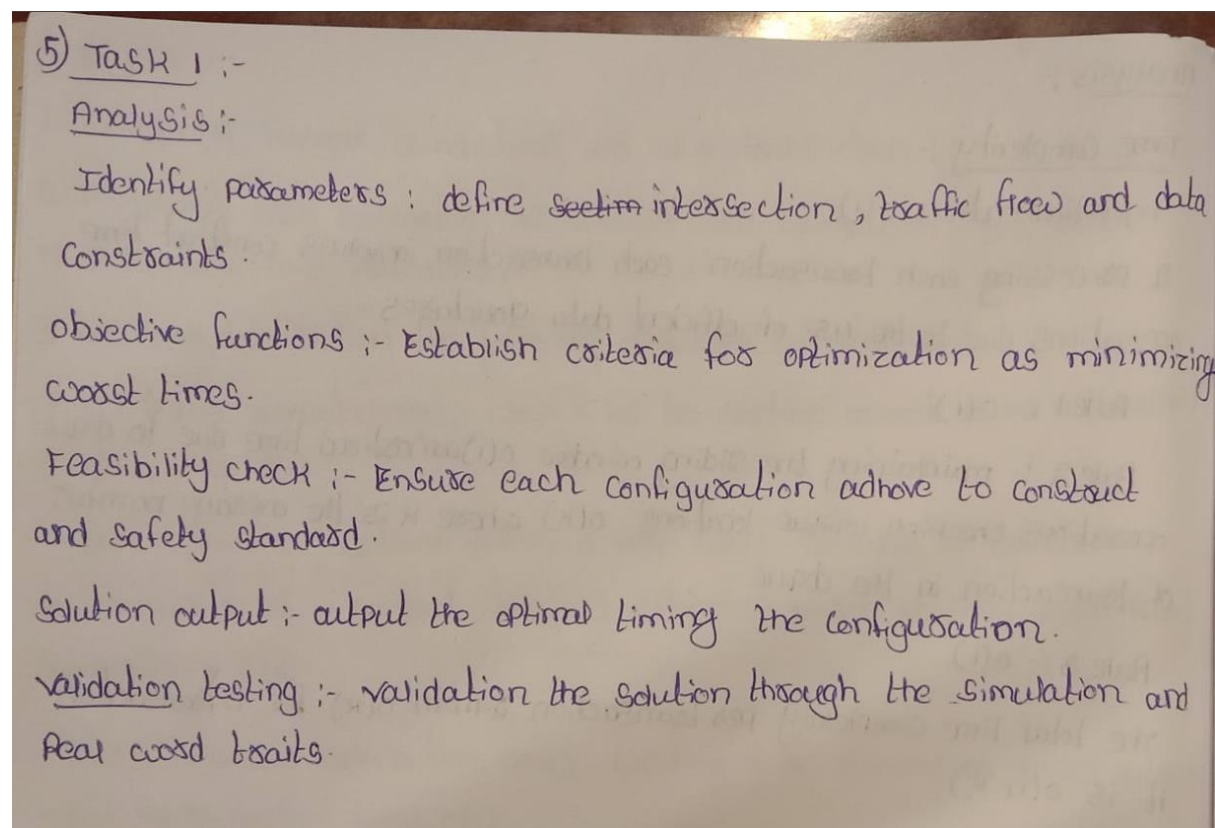 5) Task 1 :-
Analysis :-
Identify parameters : define intersection, traffic flow and data
constraints.
objective functions :- Establish criteria for optimization as minimizing
worst times.
Feasibility check :- Ensure each configuration adhove to construct
and safety standard.
Solution output :- output the optimal timing the configuration.
validation testing :- validation the solution through the simulation and
Real word traits.